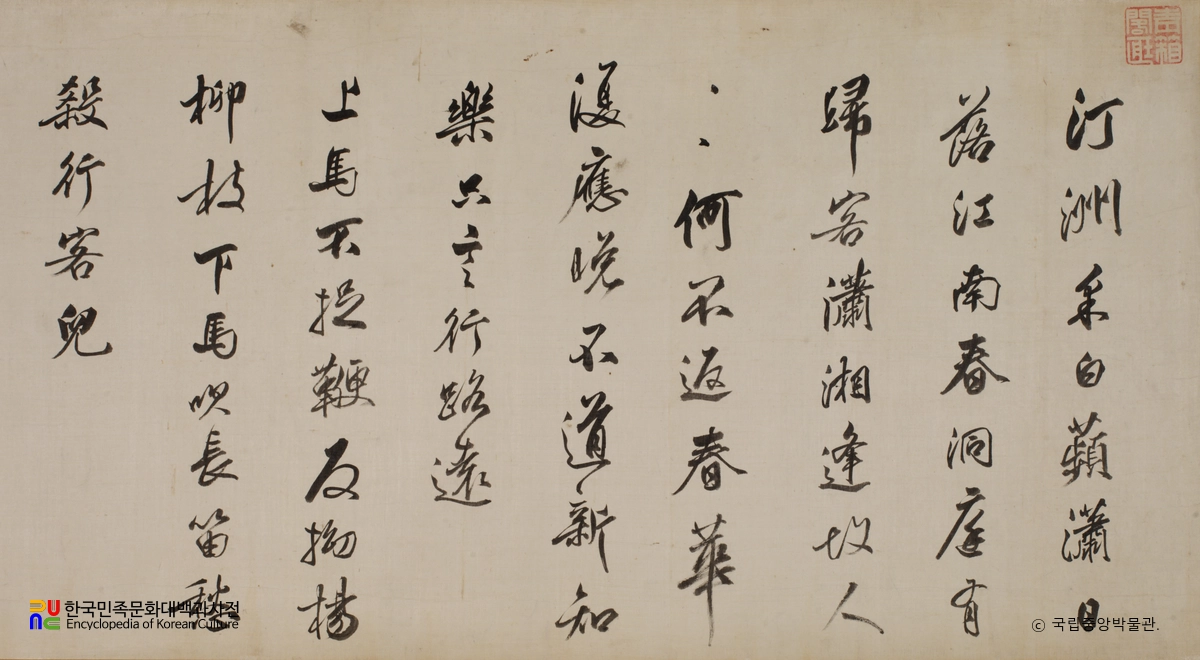 汀洲采白蘋瀟日
落江南春洞庭有
歸客瀟湘逢故人
、、何不返春華
復應晚不道新知
樂只言行路遠
上馬不捉鞭反拗楊
柳枝下馬吹長笛愁
殺行客兒
한국민족문화대백과사전
Encyclopedia of Korean Culture
ⓒ 국립중앙박물관.